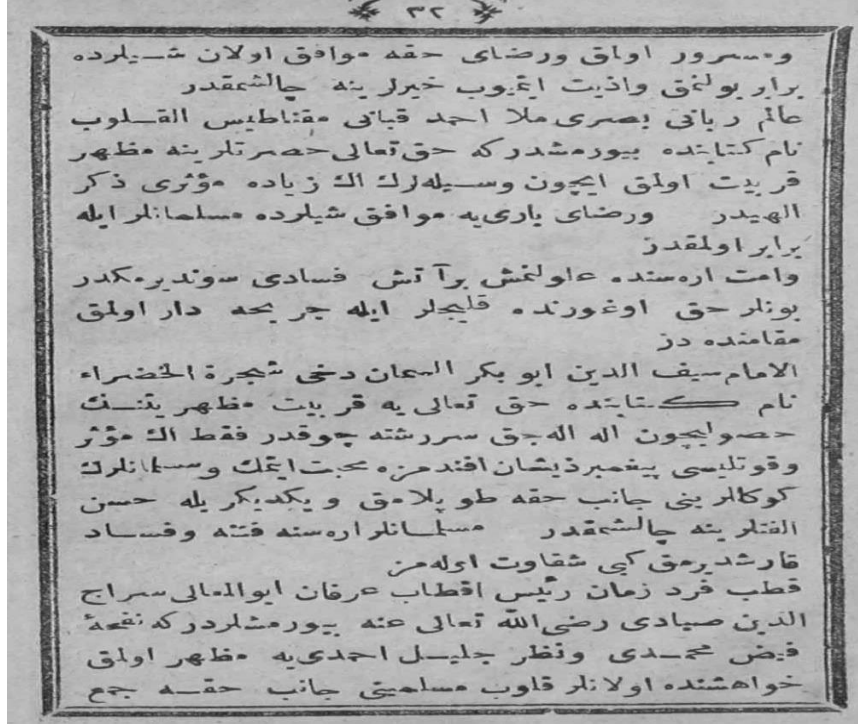 ٣٢
ومسرور اولمق ورضاى حقه موافق اولان شيلرده
برابر بولنمق واذيت ايتميوب خيرلرينه چالشمقدر
عالم ربانى بصرى ملا احمد قبانى مقناطيس القلوب
نام كتابنده بيورمشدركه حق تعالى حضرتلرينه مظهر
قربيت اولمق ايچون وسيله لرك اك زياده مؤثرى ذكر
الهيدر ورضاى بارى يه موافق شيلرده مسلمانلر ايله
برابر اولمقدر
وامت اره سنده علولنمش برآتش فسادى سوندير مكدر
بونلر حق اوغورنده قليجلر ايله جريحه دار اولمق
مقامنده در
الامام سيف الدين ابو بكر السمان دخى شجرة الخضراء
نام كتابنده حق تعالى يه قربيت مظهريتنك
حصوليچون اله اله جق سررشته چوقدر فقط اك مؤثر
وقوتليسى پيغمبر ذيشان افندمزه محبت ايتمك ومسلمانلرك
كوكللرينى جانب حقه طوپلامق ويكديكريله حسن
الفتلرينه چالشمقدر مسلمانلر اره سنه فتنه وفساد
قارشديرمق كبى شقاوت اوله مز
قطب فرد زمان رئيس اقطاب عرفان ابوالمعالى سراج
الدين صيادى رضى الله تعالى عنه بيورمشلردركه نفحۀ
فيض محمدى ونظر جليل احمدى يه مظهر اولمق
خواهشنده اولانلر قلوب مسلمينى جانب حقه جمع